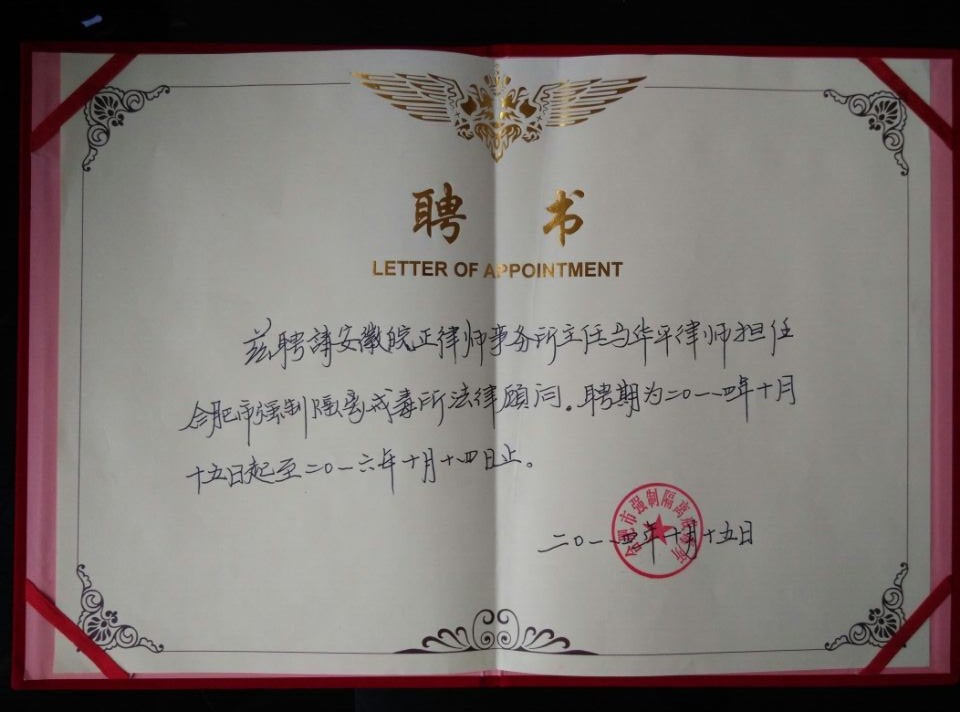 聘 书
LETTER OF APPOINTMENT
兹聘請安徽皖正律师事务所主任马华平律师担任
合肥市强制隔离戒毒所法律顾问。聘期为二〇一四年十月
十五日起至二〇一六年十月十四日止。
合肥市强制隔离戒毒所
二〇一四年十月十五日